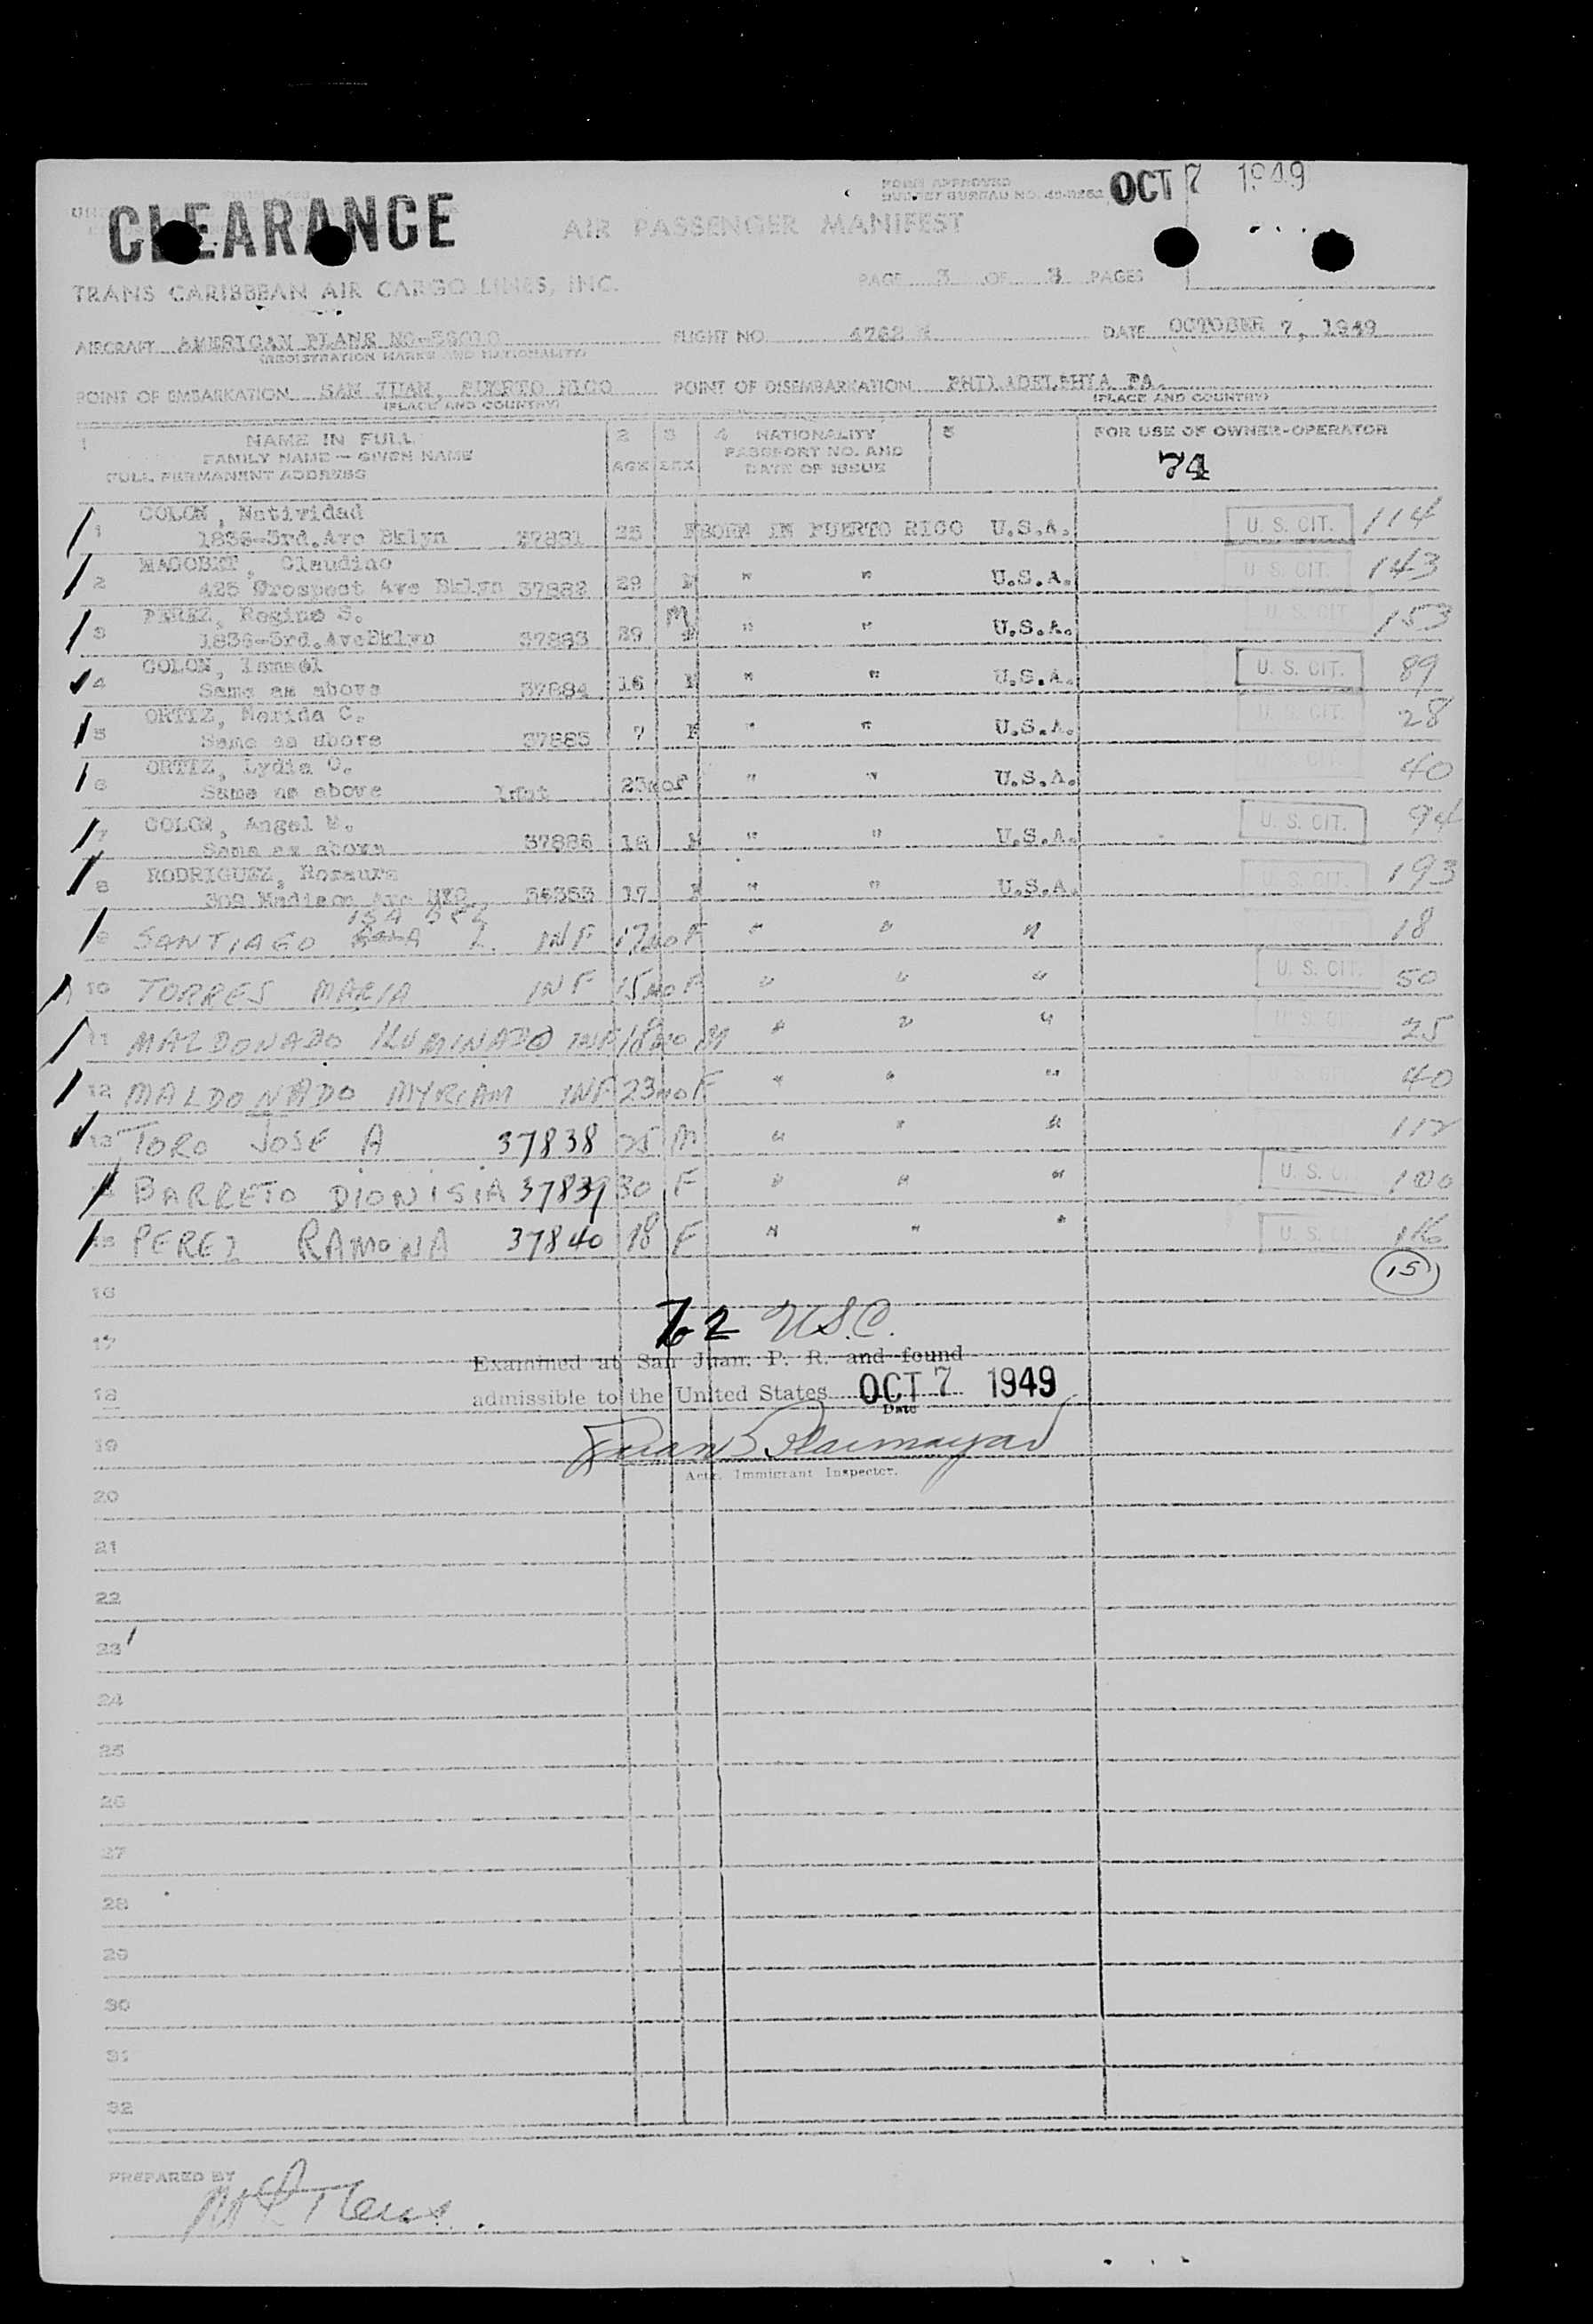 CLEARANCE
FORM APPROVED
BUDGET BUREAU NO.
OCT 7 1949
AIR PASSENGER MANIFEST
TRANS CARIBBEAN AIR CARGO LINES, INC.
PAGE 3 OF 3 PAGES
AIRCRAFT AMERICAN PLANE
FLIGHT NO.
DATE OCTOBER 7, 1949
(REGISTRATION MARKS AND NATIONALITY)
POINT OF EMBARKATION SAN JUAN, PUERTO RICO
POINT OF DISEMBARKATION PHILADELPHIA PA.
(PLACE AND COUNTRY) (PLACE AND COUNTRY)
1 NAME IN FULL 2 3 4 NATIONALITY 5 FOR USE OF OWNER-OPERATOR
FAMILY NAME — GIVEN NAME PASSPORT NO. AND
FULL PERMANENT ADDRESS AGE SEX DATE OF ISSUE 74
COLON, Natividad
1 1836-3rd.Ave Bklyn 37881 25 F BORN IN PUERTO RICO U.S.A. U. S. CIT. 114
MAGOBET, Claudino
2 425 Prospect Ave Bklyn 37882 29 " " U.S.A. U. S. CIT. 143
PEREZ, Regino S.
3 1836-3rd.AveBklyn 37883 29 M " " U.S.A. U. S. CIT. 153
COLON, Ismael
4 Same as above 37884 16 " " U.S.A. U. S. CIT. 89
ORTIZ, Merida C.
5 Same as above 37885 7 F " " U.S.A. U. S. CIT. 28
ORTIZ, Lydia O.
6 Same as above 23mos " " U.S.A. U. S. CIT. 40
COLON, Angel M.
7 Same as above 37886 18 " " U.S.A. U. S. CIT. 94
RODRIGUEZ, Rosaura
8 Madison Ave 17 F " " U.S.A. U. S. CIT. 193
ISABEL
9 SANTIAGO INF 17mo F " " " 18
10 TORRES MARIA INF 15mo F " " " U. S. CIT. 50
11 MALDONADO ILUMINADO INF 18mo M " " " 25
12 MALDONADO MYRIAM INF 23mo F " " " 40
13 TORO JOSE A 37838 25 M " " " 112
BARRETO DIONISIA 37839 30 F " " " U. S. 100
15 PEREZ RAMONA 37840 18 F " " " U. S. 116
15
16
72 U.S.C.
17
Examined at San Juan, P. R. and found
18 admissible to the United States OCT 7 1949
Date
19
Actg. Immigrant Inspector.
20
21
22
23
24
25
26
27
28
29
30
31
32
PREPARED BY